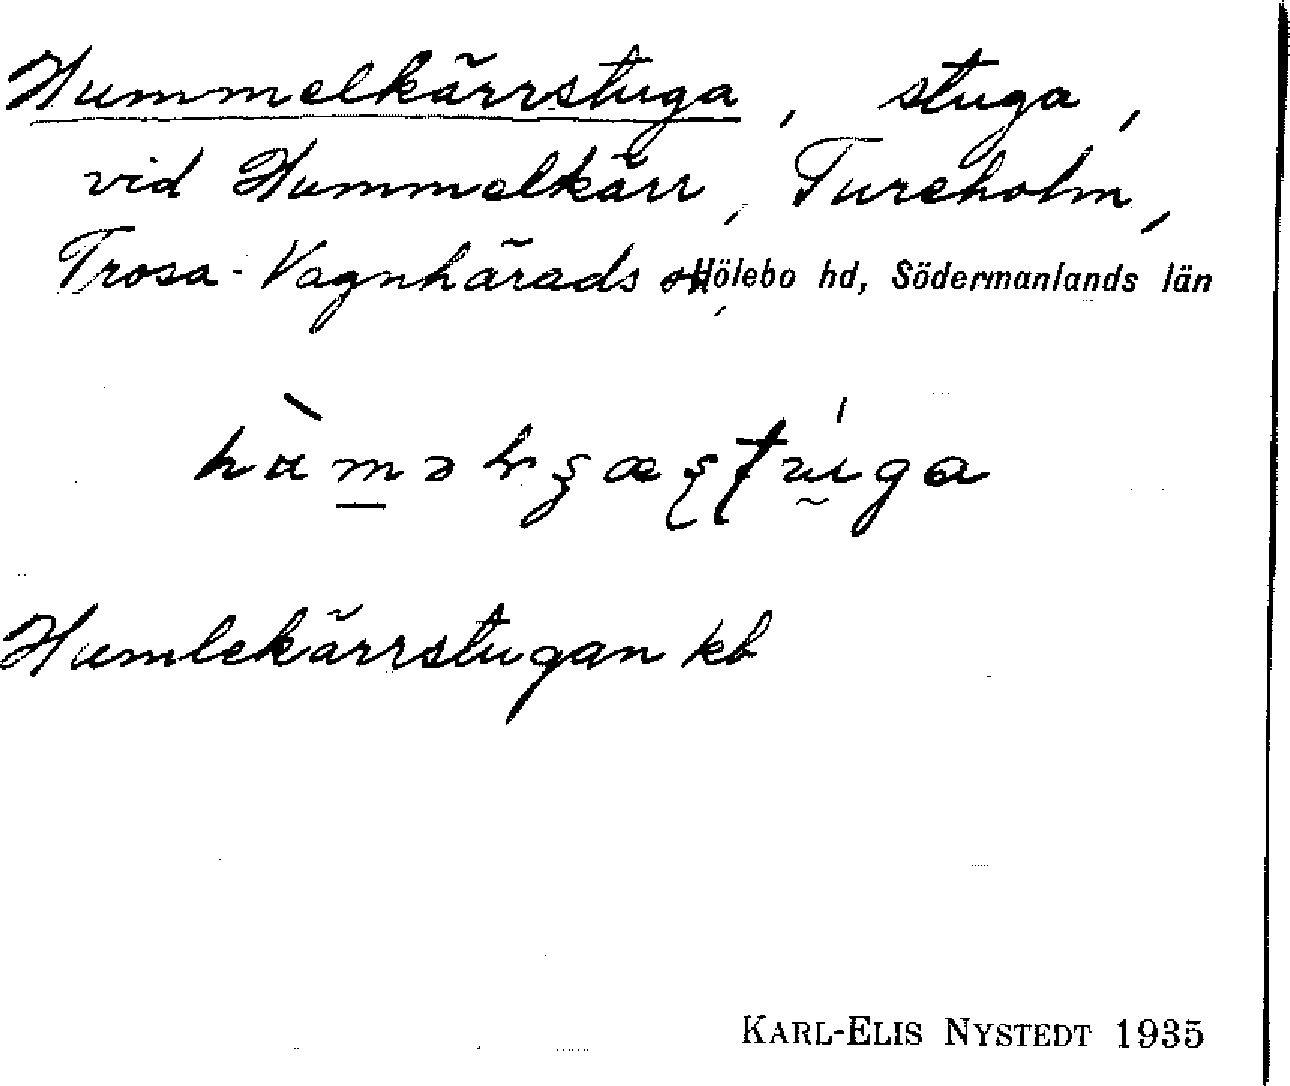 Hummelkärrstuga, stuga,
vid Hummelkärr, Tureholm,
Trosa-Vagnhärads sn, Hölebo hd, Södermanlands län
Humlekärrstugan kb
KARL-ELIS NYSTEDT 1935